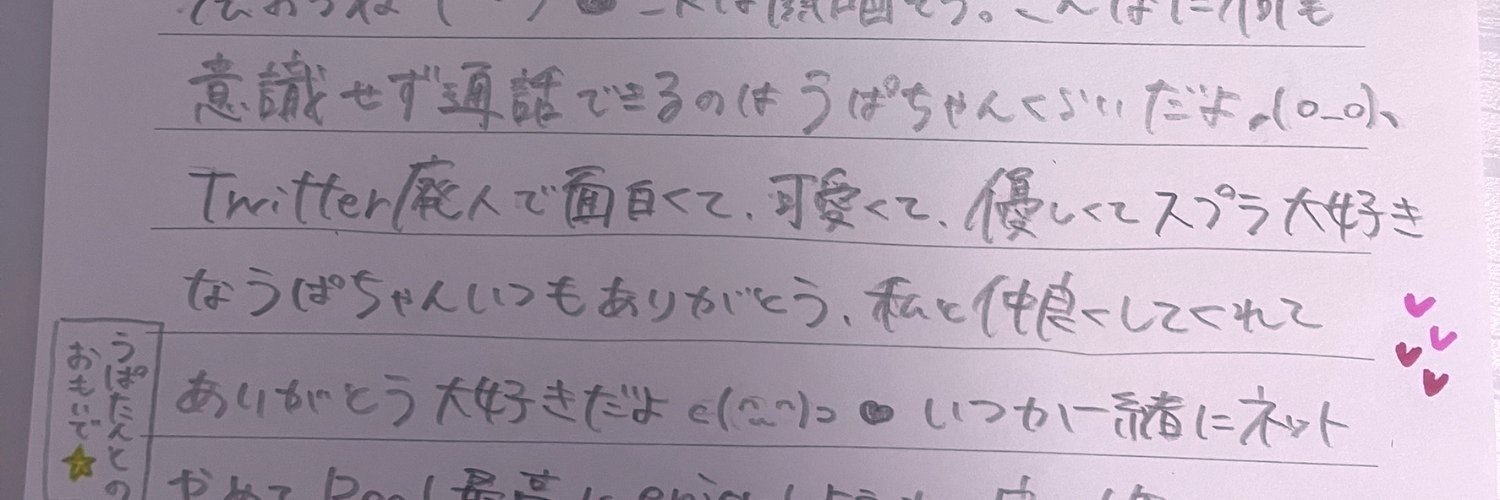 意識せず通話できるのはうぱちゃんくらいだよ、(0_0)、
Twitter廃人で面白くて、可愛くて、優しくてスプラ大好き
なうぱちゃんいつもありがとう、私と仲良くしてくれて
ありがとう大好きだよ c(^^)っ いつか一緒にネット
うぱたんとの
おもいで